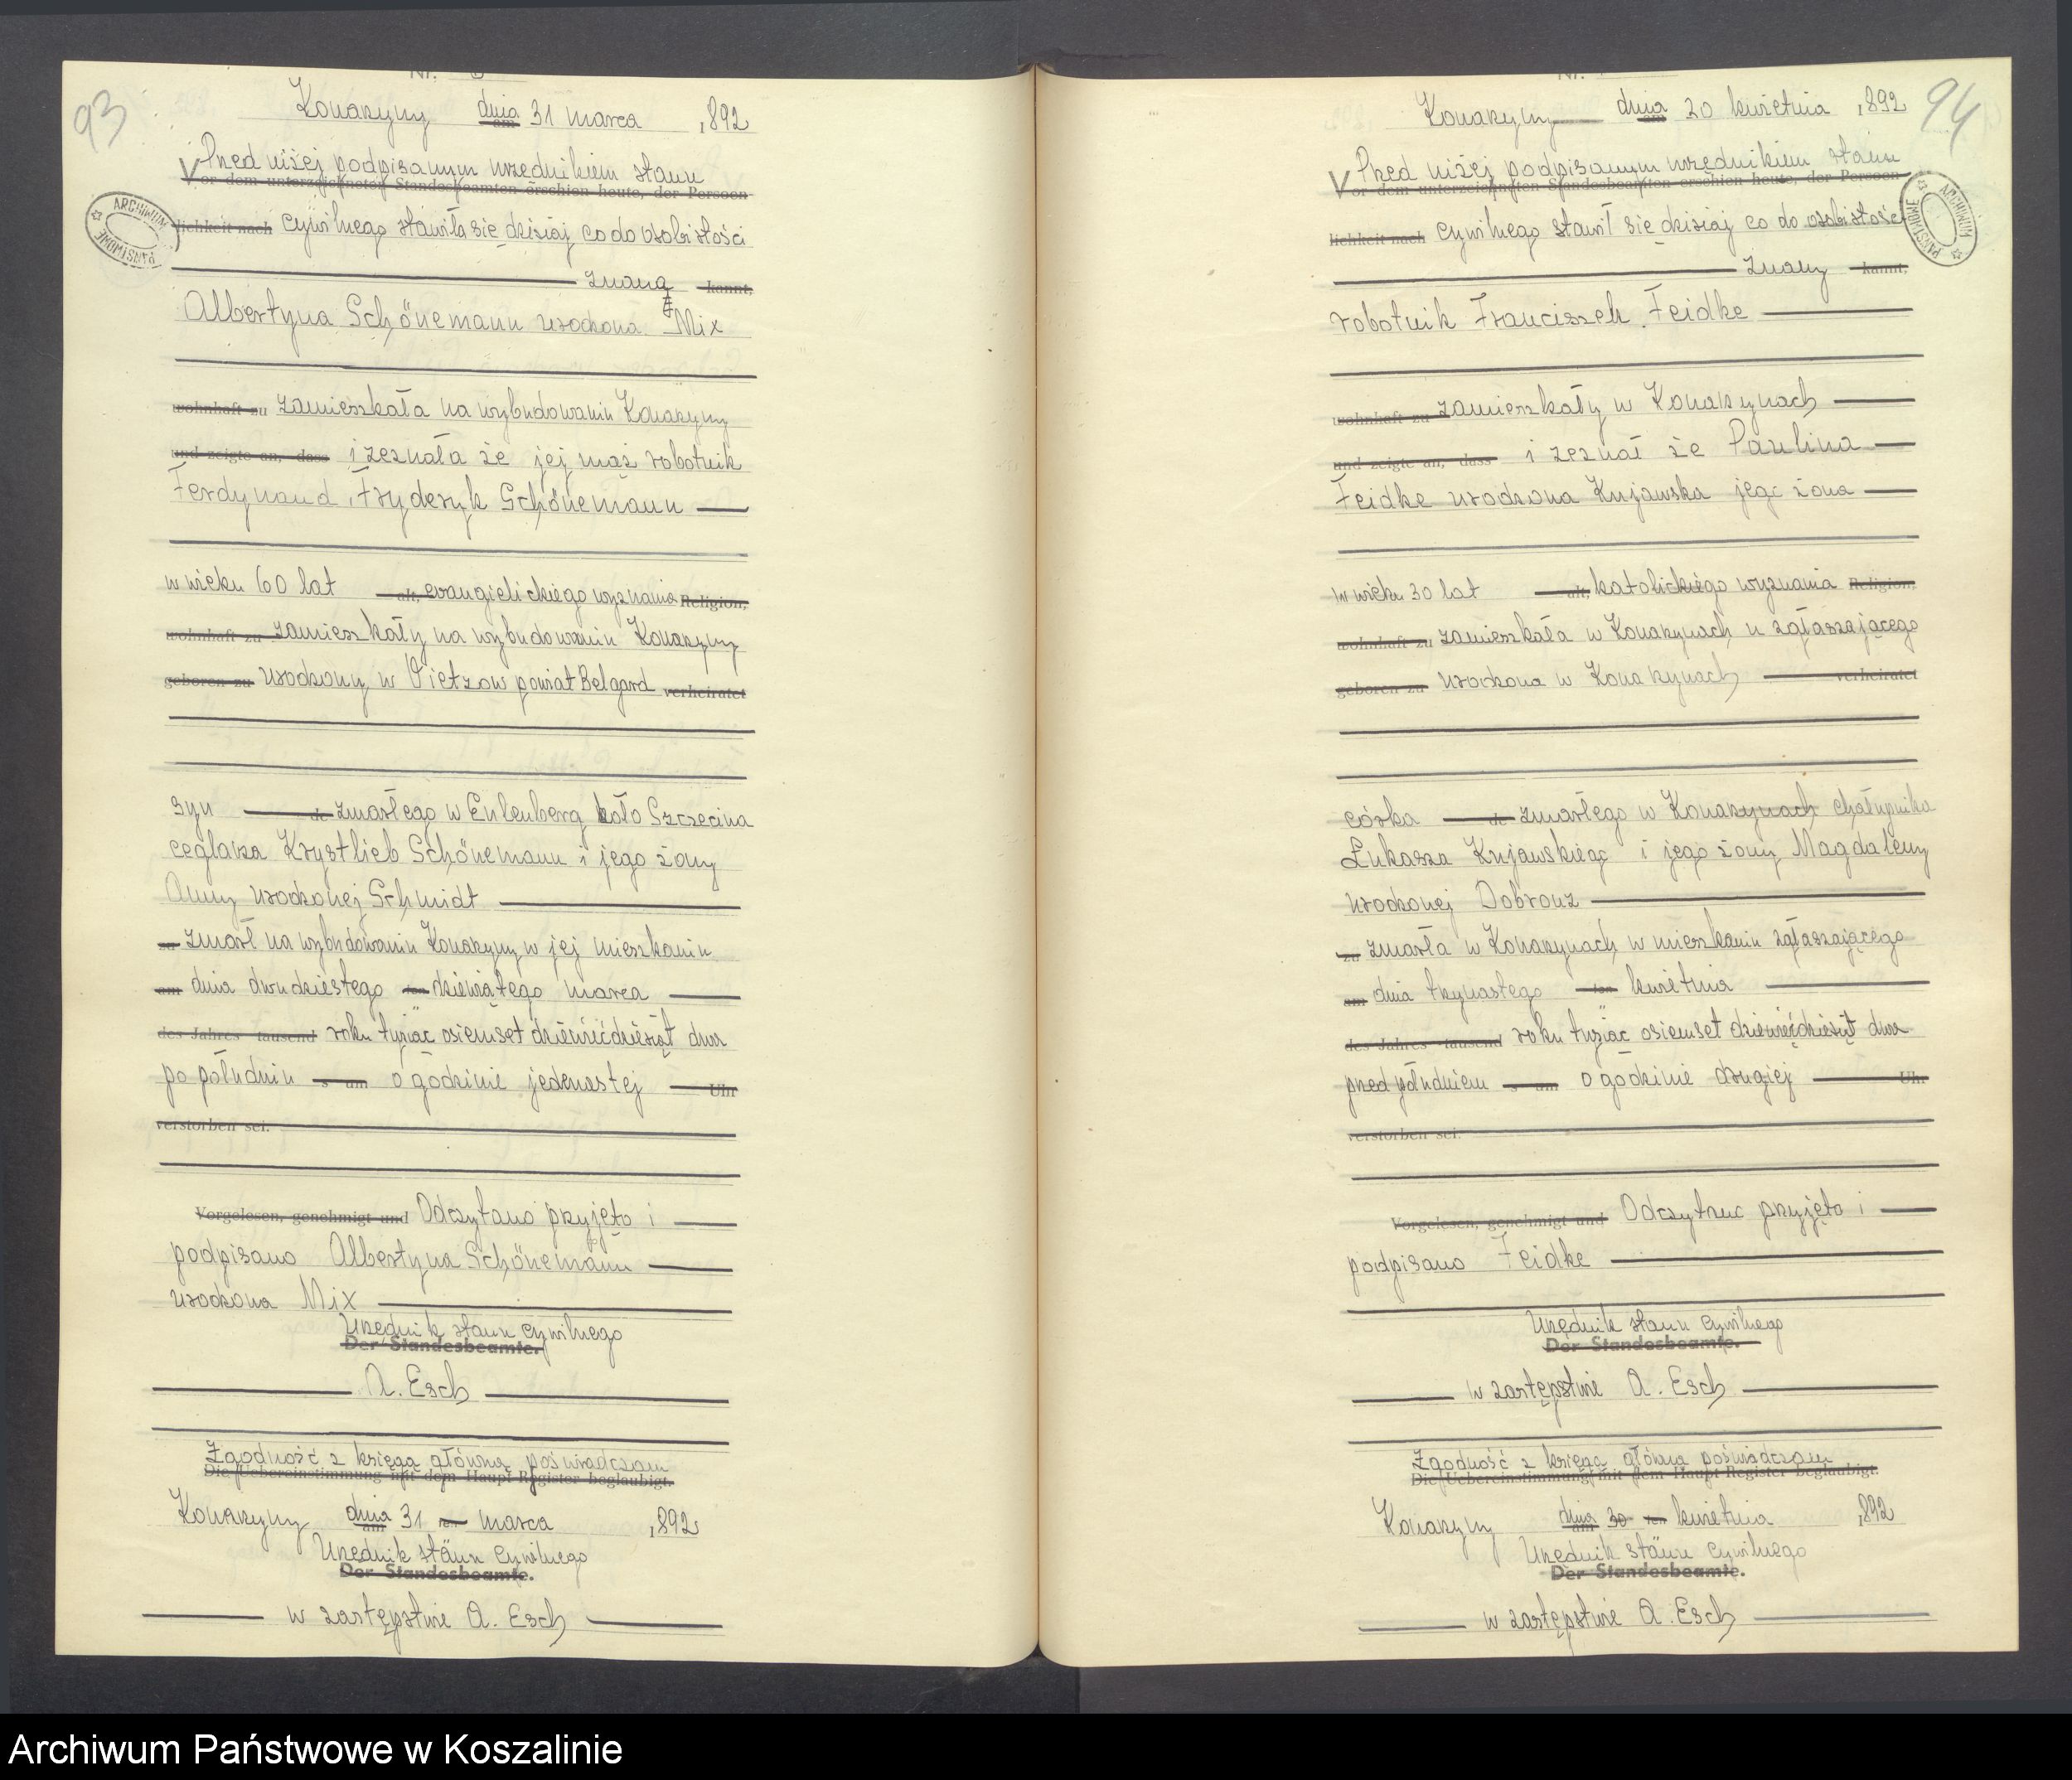 93
Konarzyny dnia am 31 marca 1892
Przed niżej podpisanym urzędnikiem stanu
Vor dem unterzeichneten Standesbeamten erschien heute, der Persoen-
lichkeit nach cywilnego stawiła się dzisiaj co do osobistości
znaną kannt,
Albertyna Schönemann urodzona Mix
wohnhaft zu zamieszkała na wybudowaniu Konarzyny
und zeigte an, dass i zeznała że jej mąż robotnik
Ferdynand, Fryderyk Schönemann
w wieku 60 lat alt, ewangielickiego wyznania Religion,
wohnhaft zu zamieszkały na wybudowaniu Konarzyny
geboren zu urodzony w Vietzow powiat Belgard verheiratet
syn de zmarłego w Eulenberg koło Szczecina
ceglarza Krystlieb Schönemann i jego żony
Anny urodzonej Schmidt
zu zmarł na wybudowaniu Konarzyny w jej mieszkaniu
am dnia dwudziestego ten dziewiątego marca
des Jahres tausend roku tysiąc osiemset dziewięćdziesiąt dwa
po południu s um o godzinie jedenastej Uhr
verstorben sei.
Vorgelesen, genehmigt und Odczytano przyjęto i
podpisano Albertyna Schönemann
urodzona Mix
Urzędnik stanu cywilnego
Der Standesbeamte.
A. Esch
Zgodność z księgą główną poświadczam
Die Uebereinstimmung mit dem Haupt-Register beglaubigt.
Konarzyny dnia am 31 ten marca 1892
Urzędnik stanu cywilnego
Der Standesbeamte.
w zastępstwie A. Esch
ARCHIWUM PAŃSTWOWE
94
Konarzyny dnia am 20 kwietnia 1892
Przed niżej podpisanym urzędnikiem stanu
Vor dem unterzeichneten Standesbeamten erschien heute, der Persoen-
lichkeit nach cywilnego stawił się dzisiaj co do osobistości
znany kannt,
robotnik Franciszek Feidke
wohnhaft zu zamieszkały w Konarzynach
und zeigte an, dass i zeznał że Paulina
Feidke urodzona Kujawska jego żona
w wieku 30 lat alt, katolickiego wyznania Religion,
wohnhaft zu zamieszkała w Konarzynach u zgłaszającego
geboren zu urodzona w Konarzynach verheiratet
córka de zmarłego w Konarzynach chałupnika
Łukasza Kujawskiego i jego żony Magdaleny
urodzonej Dobronz
zu zmarła w Konarzynach w mieszkaniu zgłaszającego
am dnia trzynastego ten kwietnia
des Jahres tausend roku tysiąc osiemset dziewięćdziesiąt dwa
przed południem s um o godzinie drugiej Uhr
verstorben sei.
Vorgelesen, genehmigt und Odczytano przyjęto i
podpisano Feidke
Urzędnik stanu cywilnego
Der Standesbeamte.
w zastępstwie A. Esch
Zgodność z księgą główną poświadczam
Die Uebereinstimmung mit dem Haupt-Register beglaubigt.
Konarzyny dnia am 30 ten kwietnia 1892
Urzędnik stanu cywilnego
Der Standesbeamte.
w zastępstwie A. Esch
ARCHIWUM PAŃSTWOWE
Archiwum Państwowe w Koszalinie